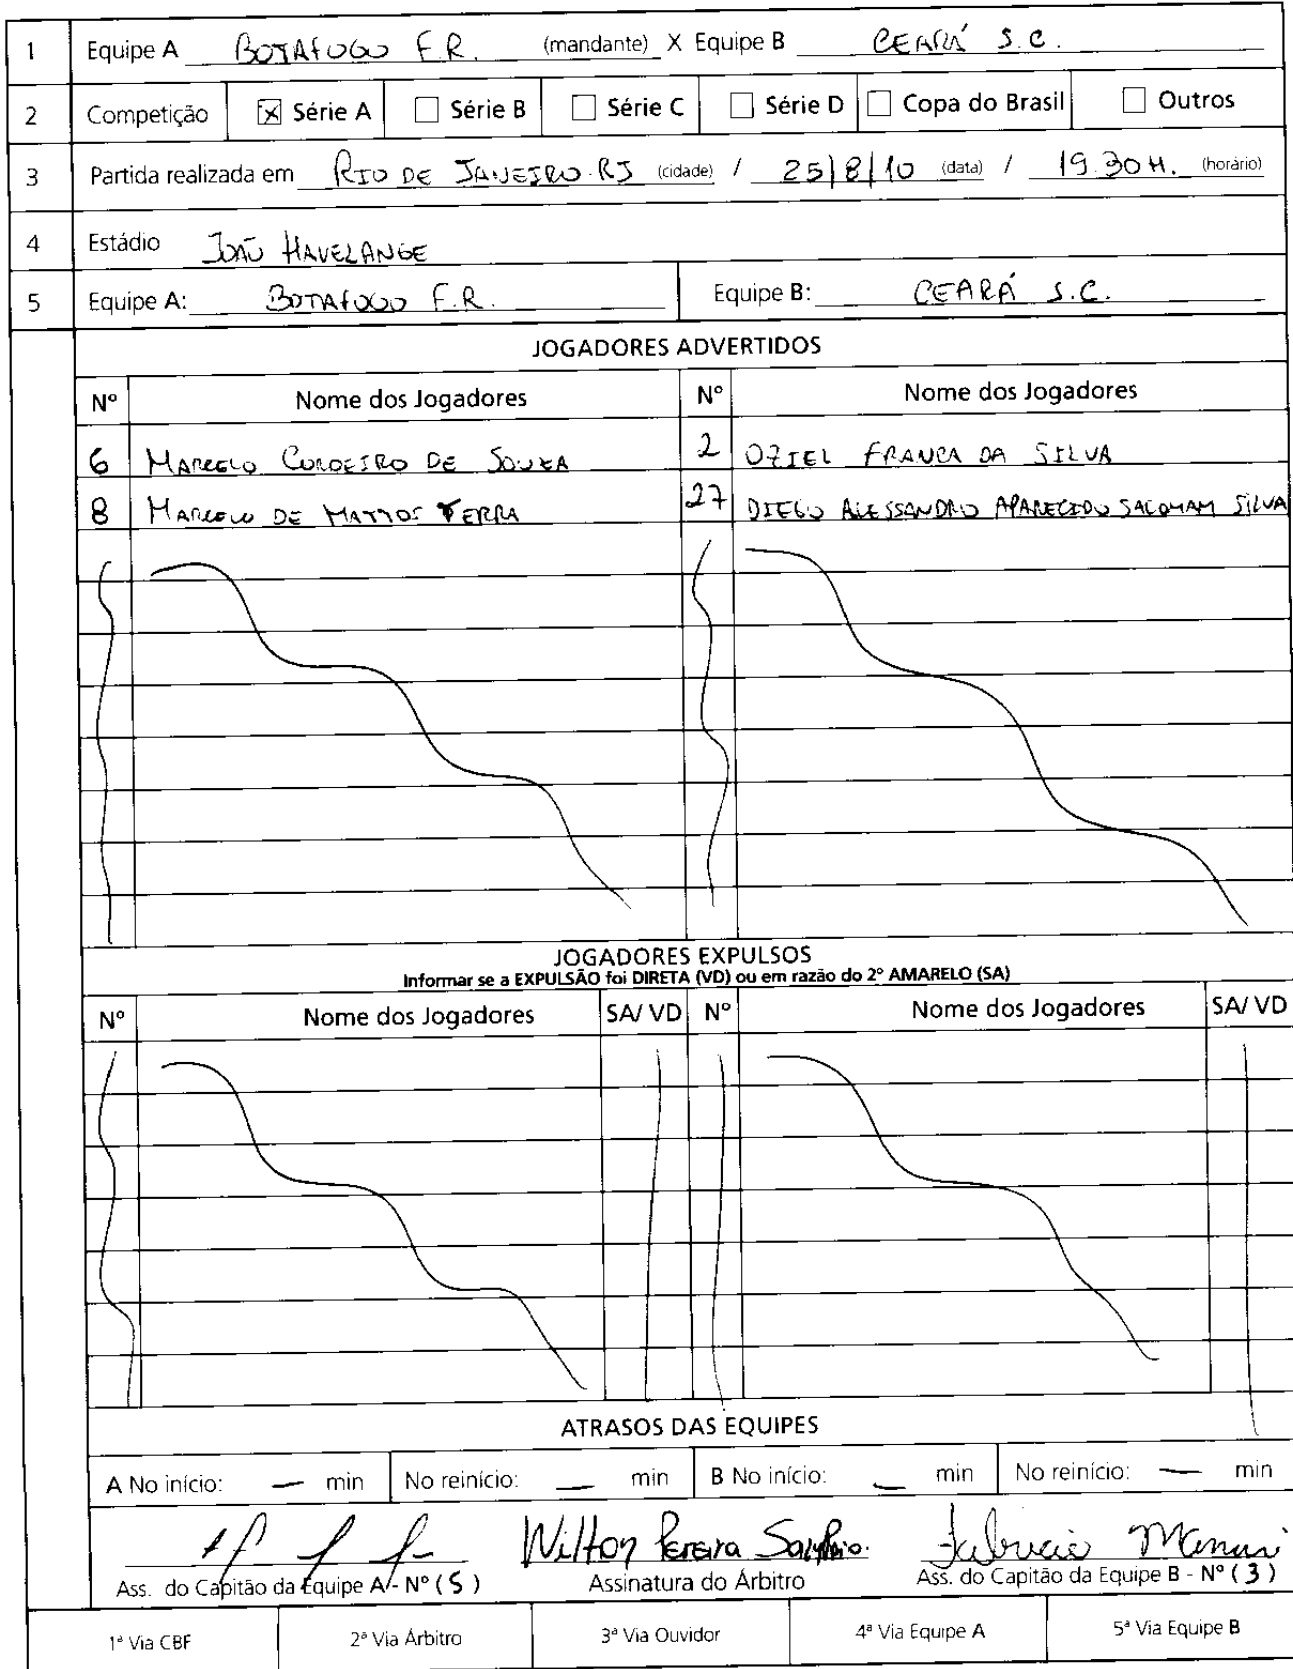 1 Equipe A BOTAFOGO F.R. (mandante) X Equipe B CEARÁ S.C.
2 Competição ☒ Série A ☐ Série B ☐ Série C ☐ Série D ☐ Copa do Brasil ☐ Outros
3 Partida realizada em RIO DE JANEIRO-RJ (cidade) / 25/8/10 (data) / 19.30H. (horário)
4 Estádio JOÃO HAVELANGE
5 Equipe A: BOTAFOGO F.R. Equipe B: CEARÁ S.C.
JOGADORES ADVERTIDOS
Nº Nome dos Jogadores Nº Nome dos Jogadores
6 MARCELO CORDEIRO DE SOUZA 2 OZIEL FRANCA DA SILVA
8 MARCELO DE MATTOS TERRA 27 DIEGO ALESSANDRO APARECIDO SALOMAM SILVA
JOGADORES EXPULSOS
Informar se a EXPULSÃO foi DIRETA (VD) ou em razão do 2º AMARELO (SA)
Nº Nome dos Jogadores SA/ VD Nº Nome dos Jogadores SA/ VD
ATRASOS DAS EQUIPES
A No início: — min No reinício: — min B No início: — min No reinício: — min
Wilton Pereira Sampaio. Fabricio
Ass. do Capitão da Equipe A - Nº (5) Assinatura do Árbitro Ass. do Capitão da Equipe B - Nº (3)
1ª Via CBF 2ª Via Árbitro 3ª Via Ouvidor 4ª Via Equipe A 5ª Via Equipe B